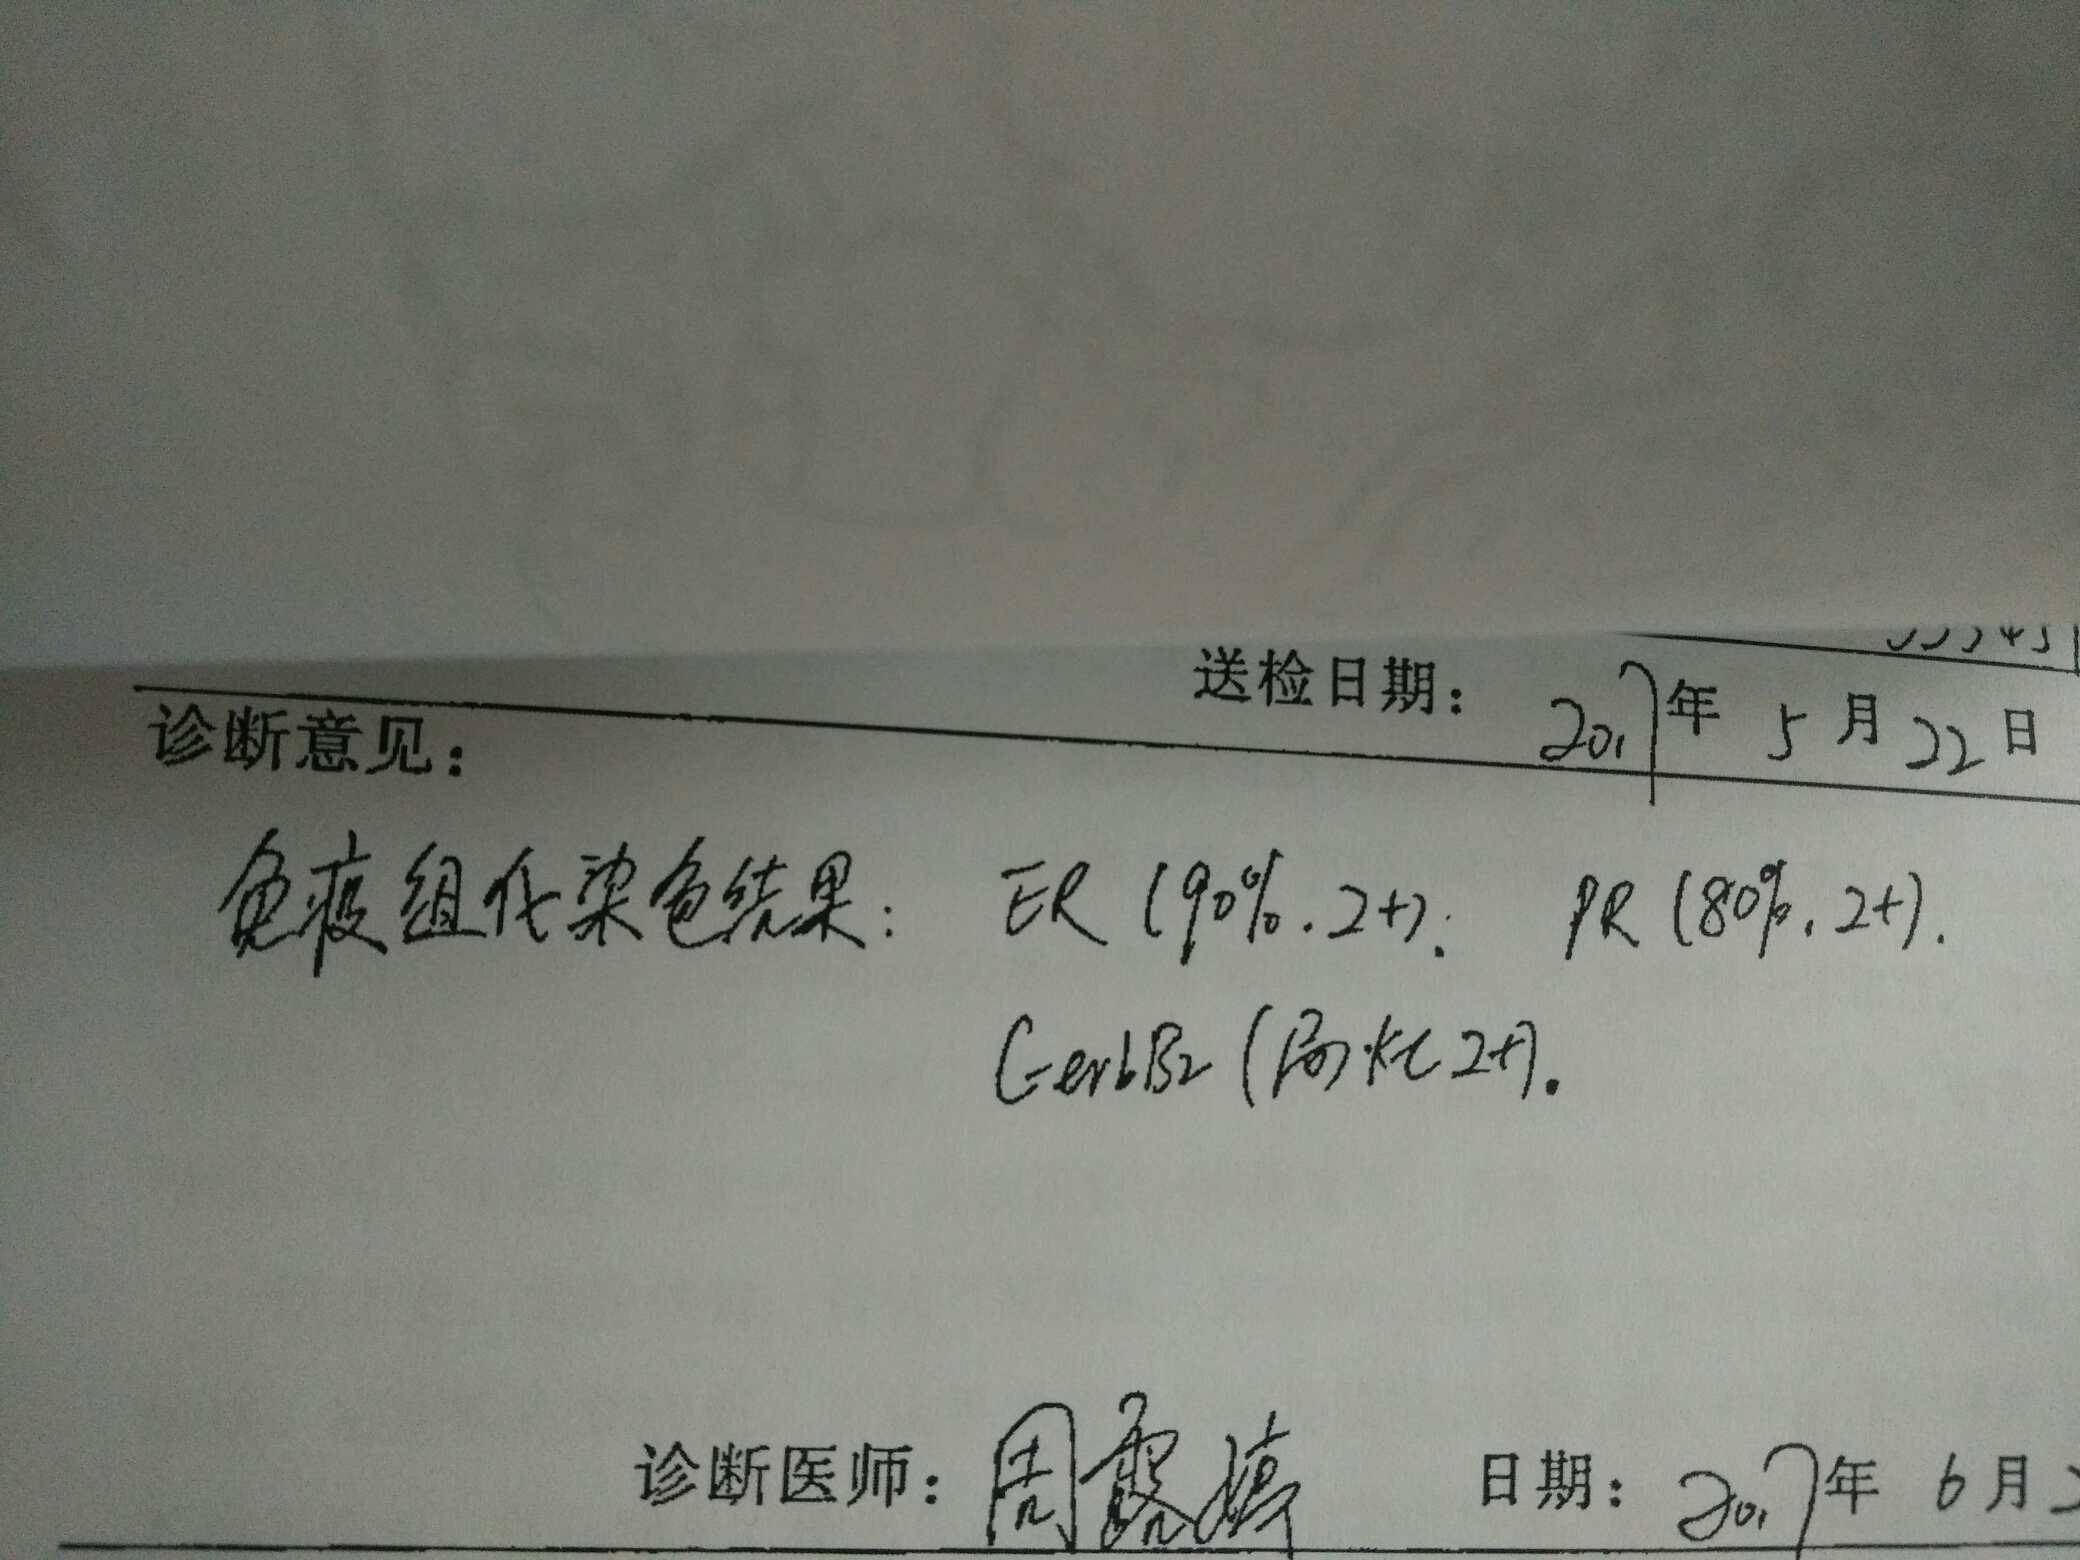 送检日期: 2017年 5月22日
诊断意见:
免疫组化染色结果: ER (90%, 2+). PR (80%, 2+).
CerbB2 (局灶2+).
诊断医师: 周 日期: 2017年 6月